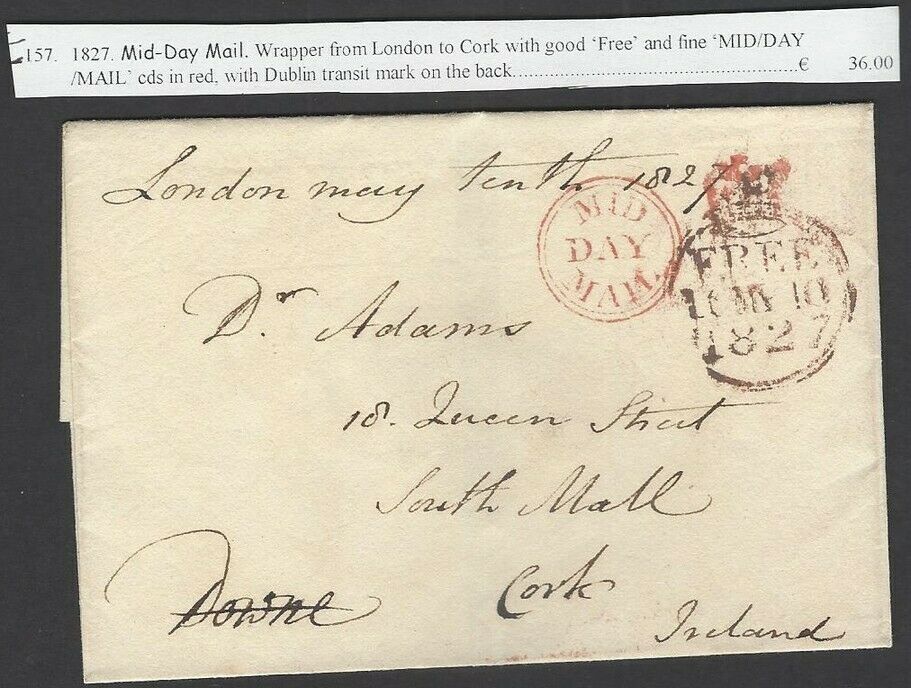 157. 1827. Mid-Day Mail. Wrapper from London to Cork with good ‘Free’ and fine ‘MID/DAY
/MAIL’ cds in red, with Dublin transit mark on the back..........................................................€ 36.00
London may tenth 1827
MID
DAY
MAIL
FREE
10 MY 10
1827
Dr Adams
18. Queen Street
South Mall
Cork
Downe
Ireland